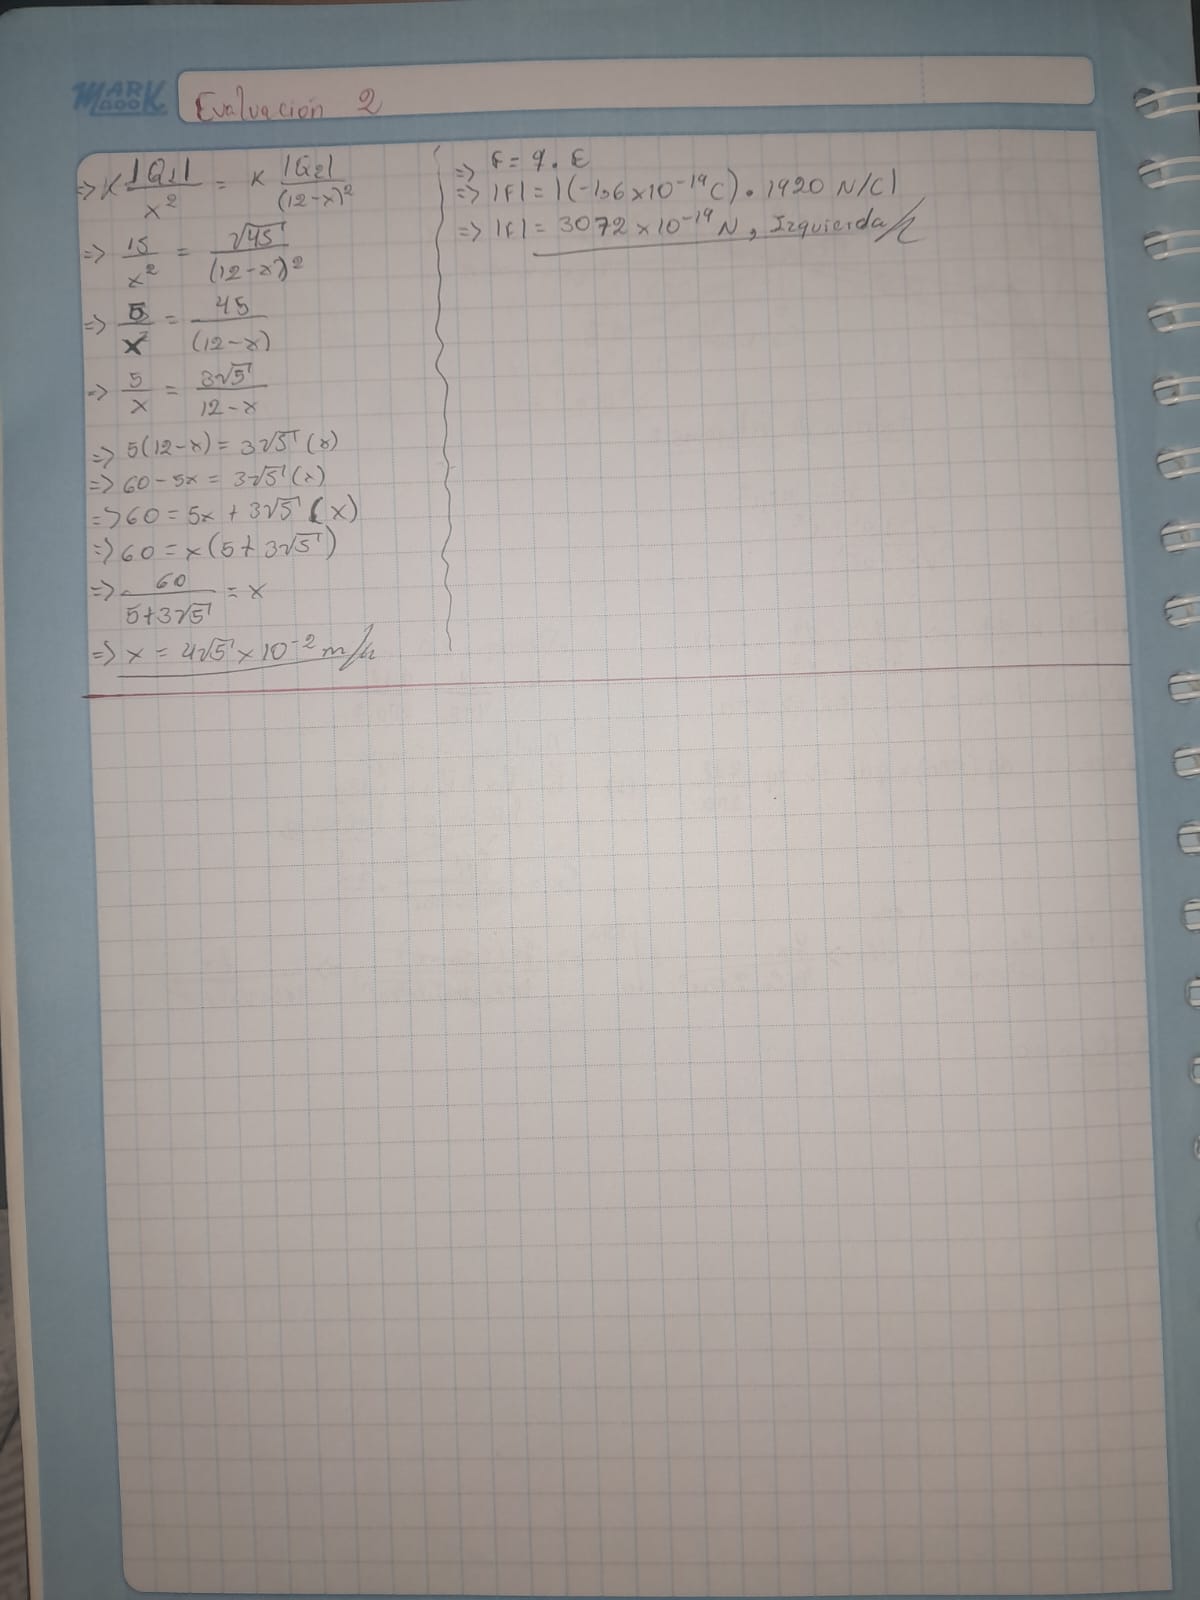 MARK BOOK
Evaluación 2
=> K |Q1|/x² = K |Q2|/(12-x)²
=> 15/x² = √45/(12-x)²
=> 5/x² = 45/(12-x)
=> 5/x = 3√5/12-x
=> 5(12-x) = 3√5 (x)
=> 60-5x = 3√5 (x)
=> 60 = 5x + 3√5 (x)
=> 60 = x(5+3√5)
=> 60/5+3√5 = x
=> x = 4√5 x 10⁻² m//
=> F = q . E
=> |F| = |(-1,6x10⁻¹⁹C) . 1920 N/C|
=> |F| = 3072 x 10⁻¹⁹ N, Izquierda//